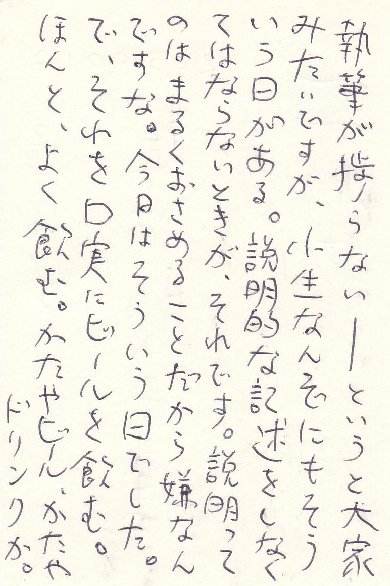 執筆が捗らない―というと大家
みたいですが、小生なんぞにもそう
いう日がある。説明的な記述をしなく
てはならないときが、それです。説明って
のはまるくおさめることだから嫌なん
ですな。今日はそういう日でした。
で、それを口実にビールを飲む。
ほんと、よく飲む。かたやビール、かたや
ドリンクか。